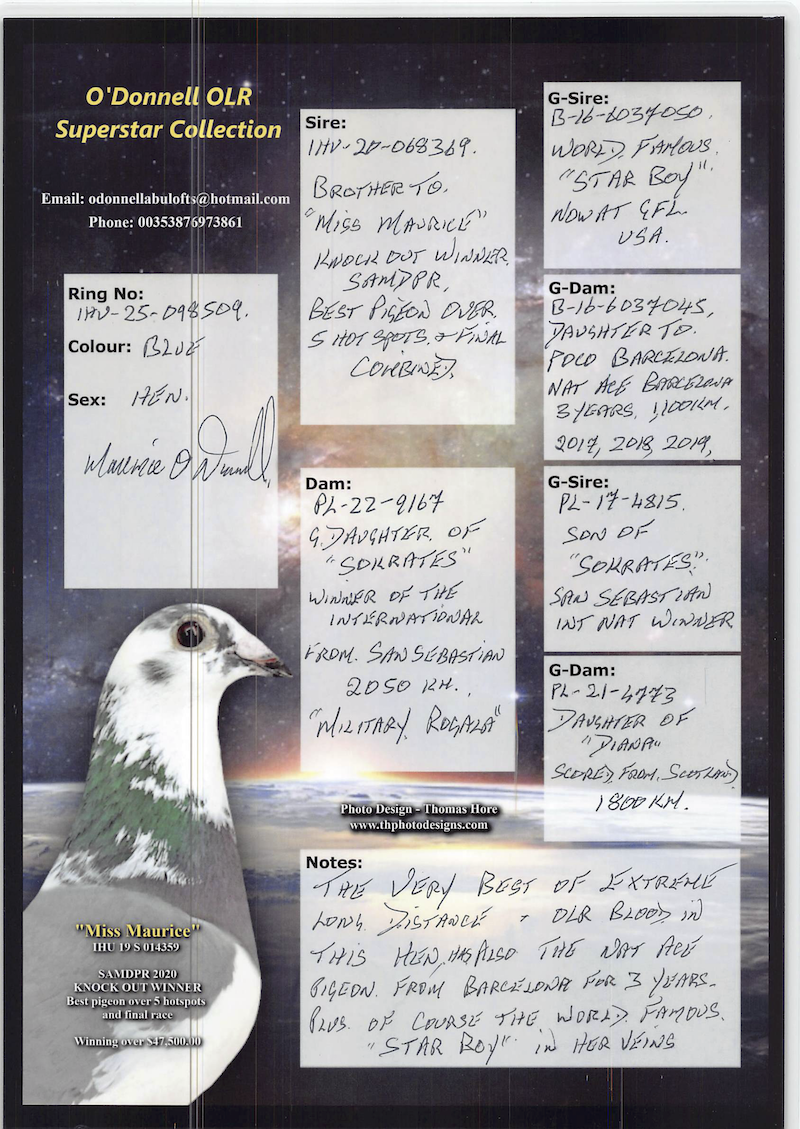 O'Donnell OLR
Superstar Collection
Email: odonnellabulofts@hotmail.com
Phone: 00353876973861
Ring No:
IHU-25-098509.
Colour: BLUE
Sex: HEN.
Maurice O'Donnell.
Sire:
IHU-20-068369.
BROTHER TO.
"MISS MAURICE"
KNOCK OUT WINNER.
SAMDPR,
BEST PIGEON OVER.
5 HOT SPOTS. & FINAL
COMBINED.
Dam:
PL-22-9167
G.DAUGHTER. OF
"SOKRATES"
WINNER OF THE
INTERNATIONAL
FROM. SAN SEBASTIAN
2050 KM.,
"MILITARY ROGALA"
G-Sire:
B-16-6037050.
WORLD. FAMOUS.
"STAR BOY".
NOW AT GFL.
USA.
G-Dam:
B-16-6037045,
DAUGHTER TO.
POCO BARCELONA.
NAT ACE BARCELONA
3 YEARS. 1,100KM.
2017, 2018, 2019,
G-Sire:
PL-17-4815.
SON OF
"SOKRATES".
SAN SEBASTIAN
INT NAT WINNER
G-Dam:
PL-21-4773
DAUGHTER OF
"DIANA"
SCORED. FROM. SCOTLAND
1800 KM.
Photo Design - Thomas Hore
www.thphotodesigns.com
Notes:
THE VERY BEST OF EXTREME
LONG DISTANCE & OLR BLOOD IN
THIS HEN, HAS ALSO THE NAT ACE
PIGEON. FROM BARCELONA FOR 3 YEARS.
PLUS. OF COURSE THE WORLD. FAMOUS.
"STAR BOY" IN HER VEINS
"Miss Maurice"
IHU 19 S 014359
SAMDPR 2020
KNOCK OUT WINNER
Best pigeon over 5 hotspots
and final race
Winning over $47,500.00